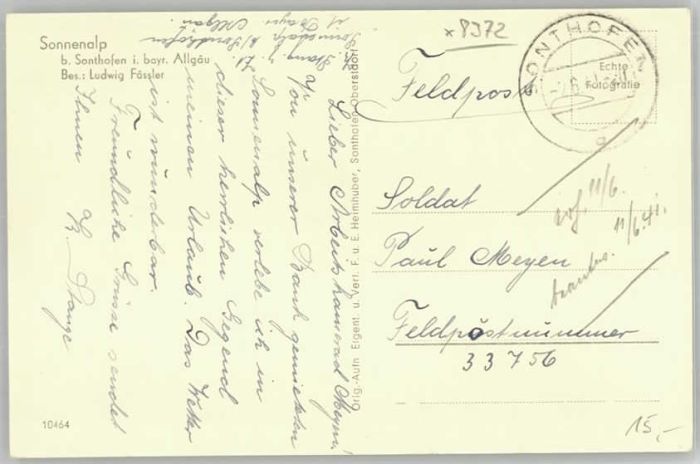 Sonnenalp
b. Sonthofen i. bayr. Allgäu
Bes.: Ludwig Fässler
z. Zt.
Sonnenalp b/ Sonthofen
Bayr. Allgäu
Lieber Arbeitskamerad Meyen!
Von unserer Bank gemieteten
Sonnenalp verlebe ich in
dieser herrlichen Gegend
meinen Urlaub. Das Wetter
ist wunderbar.
Freundliche Grüsse sendet
Ihnen
Stange
10464
Orig.-Aufn. Eigent. u. Verl. F. u. E. Heimhuber, Sonthofen-Oberstdorf
x 8372
Feldpost
SONTHOFEN
Echte
Fotografie
Soldat
Paul Meyen
Feldpostnummer
33756
11/6.
11/6.41.
15,-